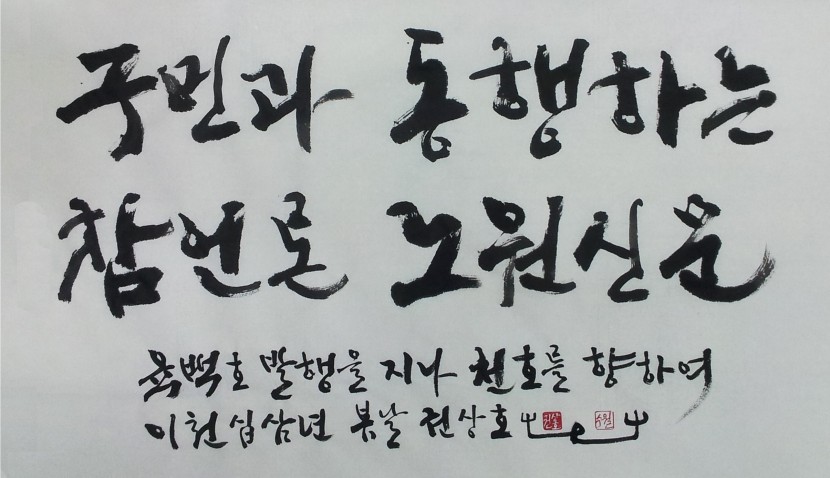 국민과 동행하는
참언론 노원신문
육백호 발행을 지나 천호를 향하여
이천십삼년 봄날 권상호